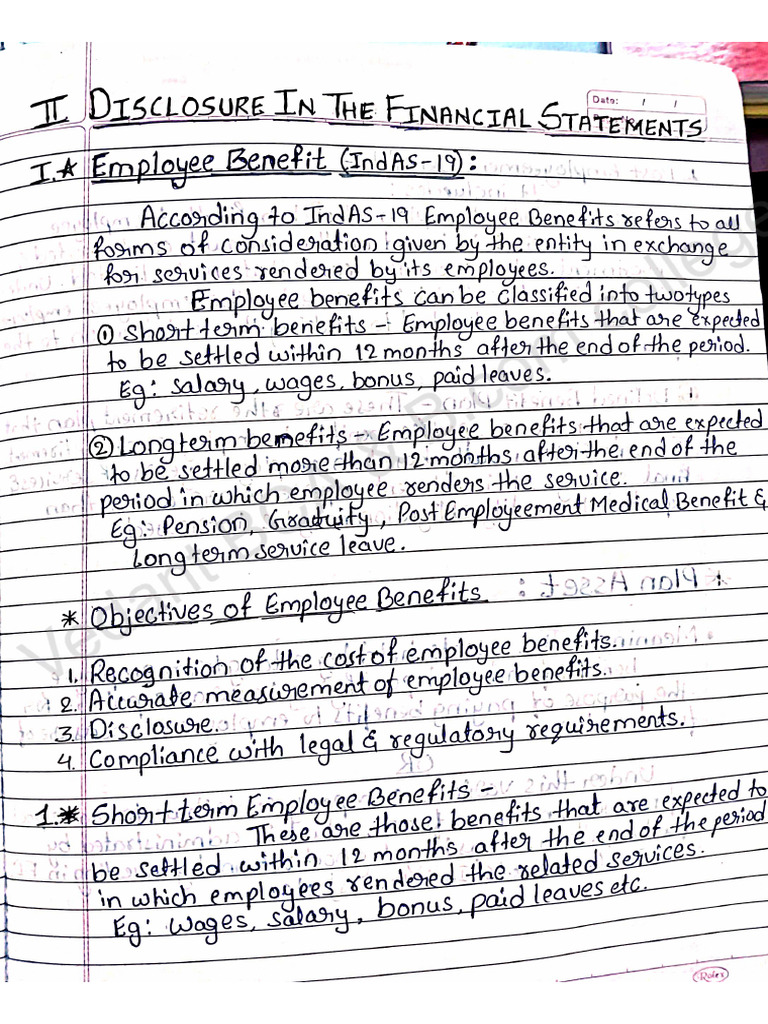 Date: / /
II DISCLOSURE IN THE FINANCIAL STATEMENTS
I.* Employee Benefit (IndAS-19):
According to IndAS-19 Employee Benefits refers to all
forms of consideration given by the entity in exchange
for services rendered by its employees.
Employee benefits can be classified into two types
① Short term benefits - Employee benefits that are expected
to be settled within 12 months after the end of the period.
Eg: salary, wages, bonus, paid leaves.
② Long term benefits - Employee benefits that are expected
to be settled more than 12 months after the end of the
period in which employee renders the service.
Eg: Pension, Graduity, Post Employeement Medical Benefit &
Long term service leave.
* Objectives of Employee Benefits
1. Recognition of the cost of employee benefits.
2. Accurate measurement of employee benefits.
3. Disclosure.
4. Compliance with legal & regulatory requirements.
1.* Short term Employee Benefits -
These are those benefits that are expected to
be settled within 12 months after the end of the period
in which employees rendered the related services.
Eg: wages, salary, bonus, paid leaves etc.
Rolex